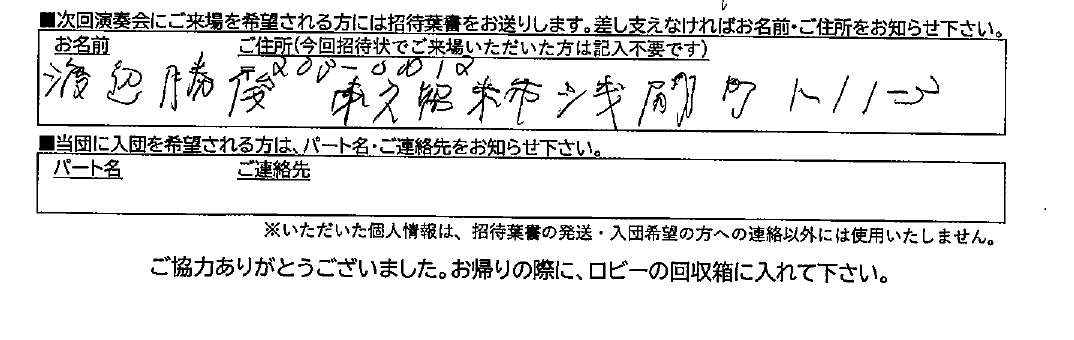 ■次回演奏会にご来場を希望される方には招待葉書をお送りします。差し支えなければお名前・ご住所をお知らせ下さい。
お名前 ご住所(今回招待状でご来場いただいた方は記入不要です)
〒200-0012
渡辺勝 東久留米市浅間町1-11-
■当団に入団を希望される方は、パート名・ご連絡先をお知らせ下さい。
パート名 ご連絡先
※いただいた個人情報は、招待葉書の発送・入団希望の方への連絡以外には使用いたしません。
ご協力ありがとうございました。お帰りの際に、ロビーの回収箱に入れて下さい。